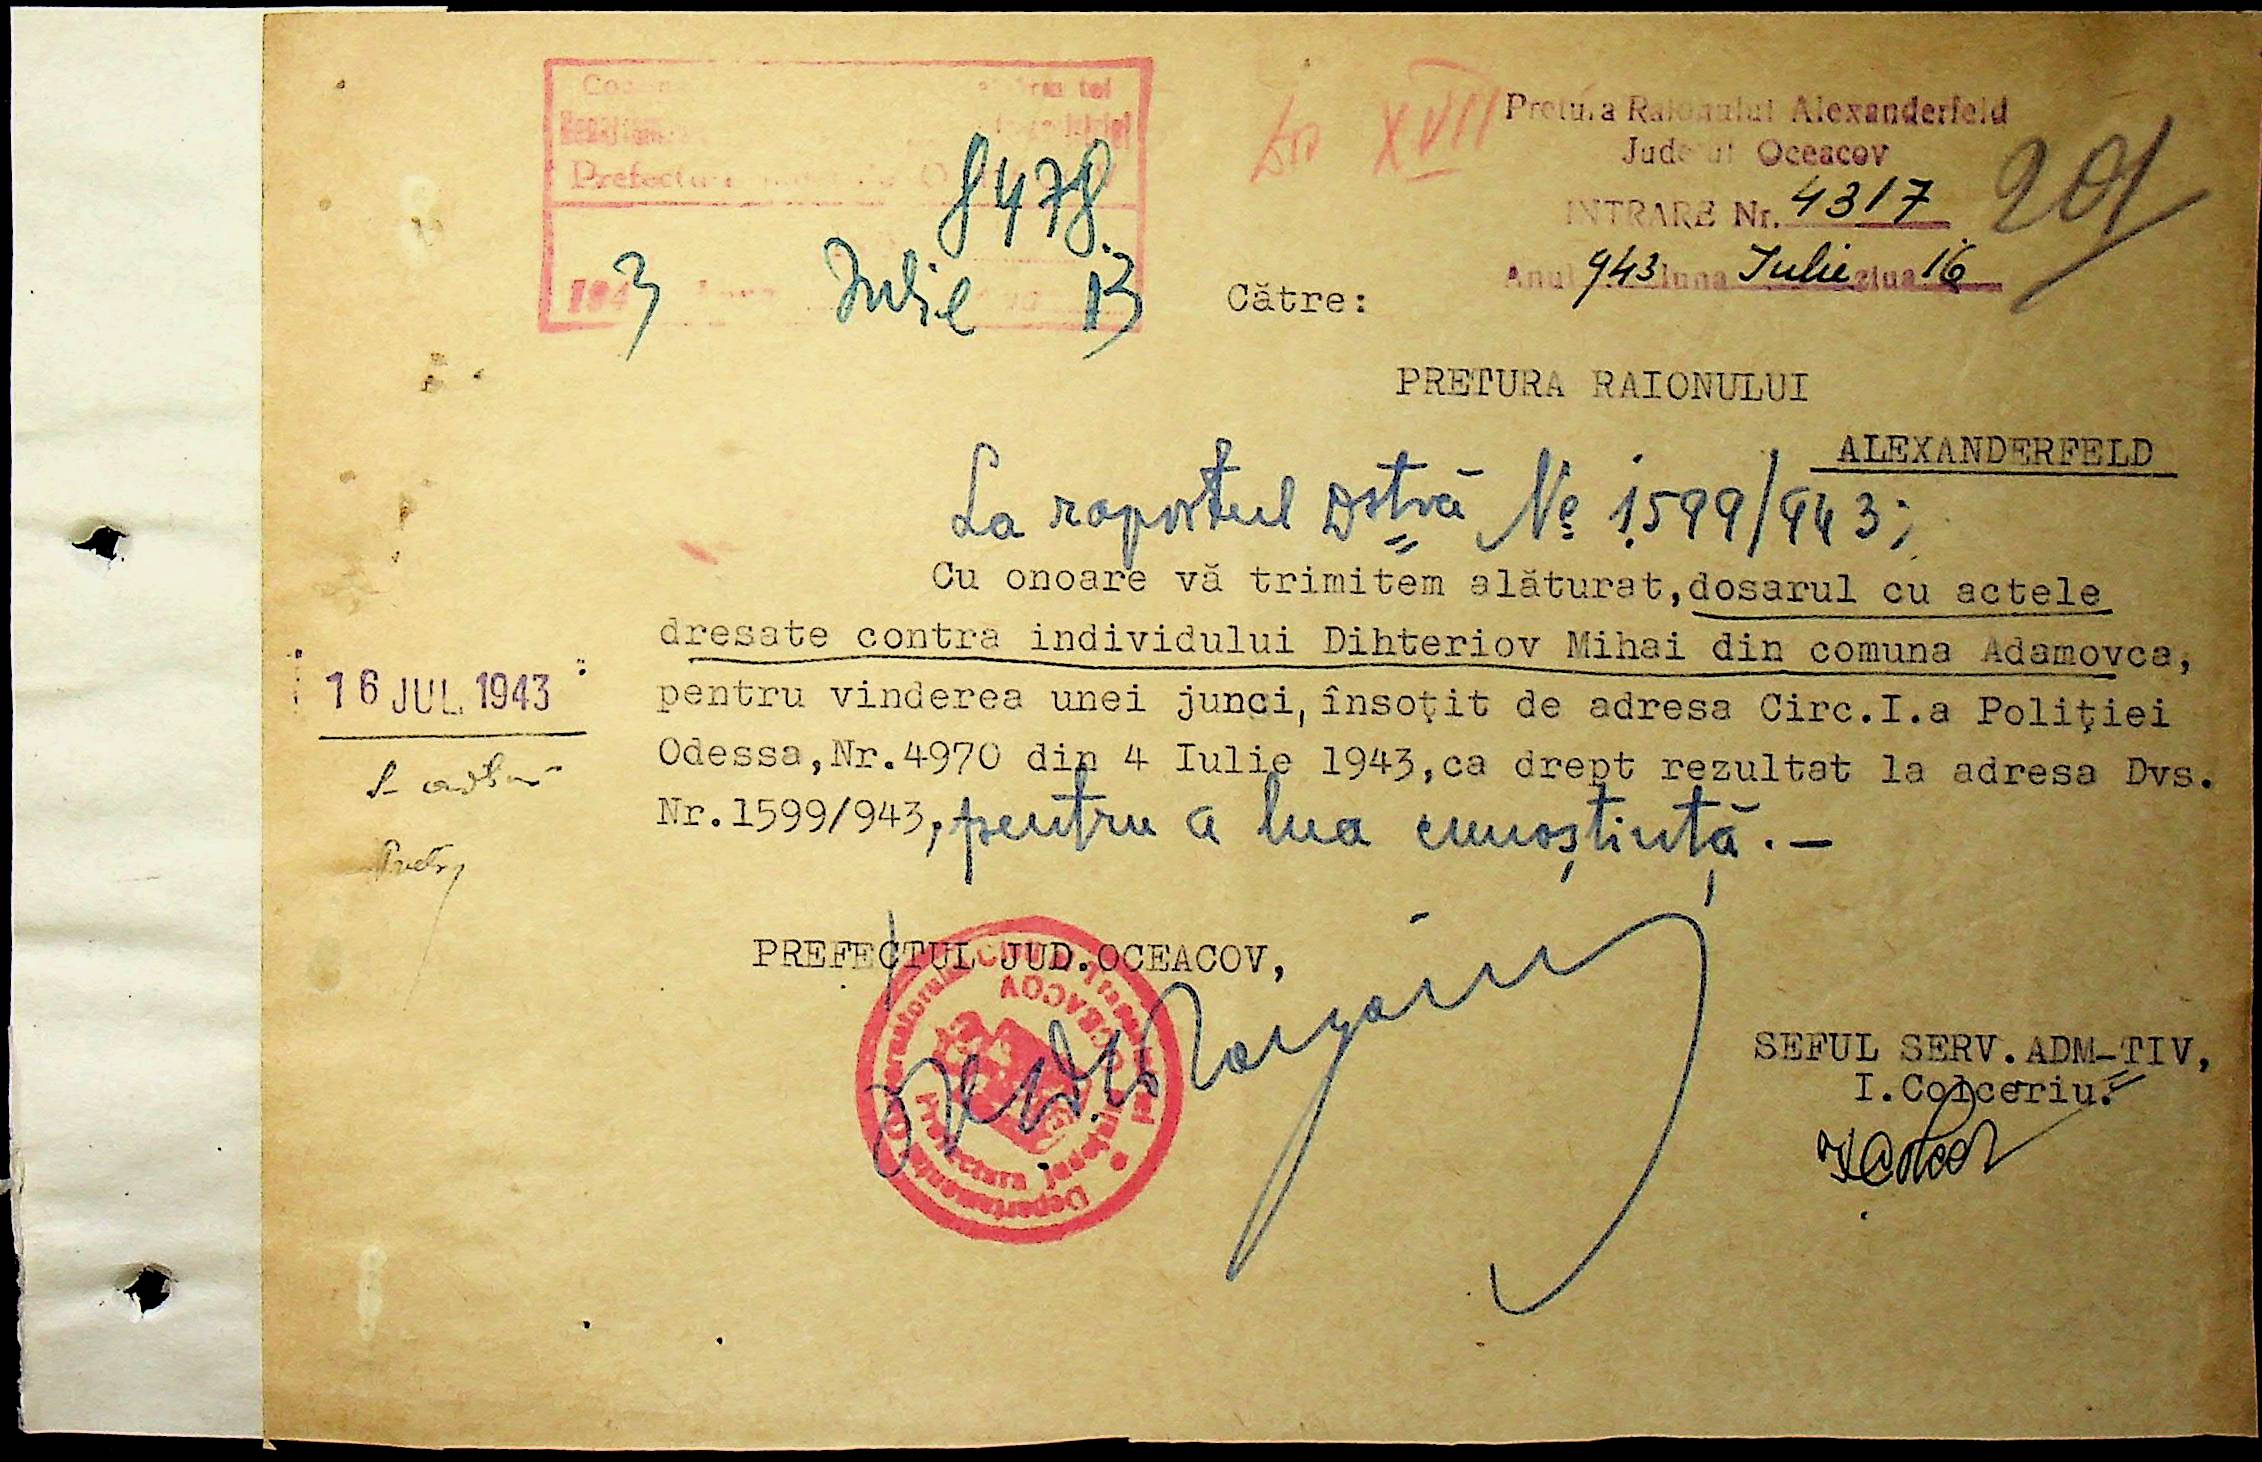 Prefectura
8478
194 3 Iulie 13
XVII
Pretura Raionului Alexanderfeld
Judetul Oceacov
INTRARE Nr. 4317
Anul 943 luna Iulie ziua 16
201
Către:
PRETURA RAIONULUI
ALEXANDERFELD
La raportul Dstră № 1599/943;
Cu onoare vă trimitem alăturat, dosarul cu actele
dresate contra individului Dihteriov Mihai din comuna Adamovca,
pentru vinderea unei junci, însoţit de adresa Circ.I.a Poliţiei
Odessa, Nr.4970 din 4 Iulie 1943, ca drept rezultat la adresa Dvs.
Nr.1599/943, pentru a lua cunoştinţă.—
16 JUL. 1943
PREFECTUL JUD.OCEACOV,
OCEACOV
Prefectura
SEFUL SERV. ADM-TIV,
I.Colceriu.